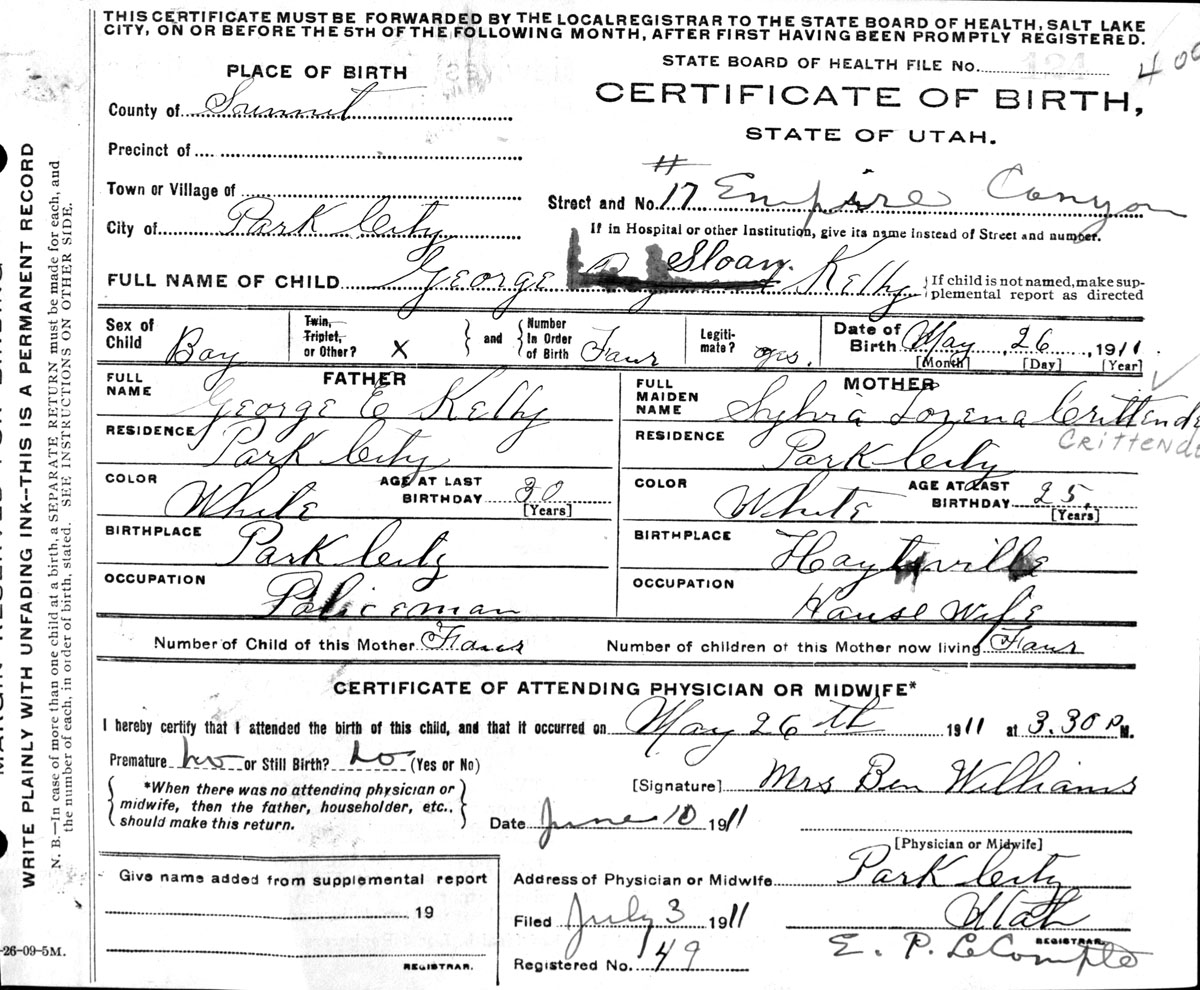 THIS CERTIFICATE MUST BE FORWARDED BY THE LOCALREGISTRAR TO THE STATE BOARD OF HEALTH, SALT LAKE
CITY, ON OR BEFORE THE 5TH OF THE FOLLOWING MONTH, AFTER FIRST HAVING BEEN PROMPTLY REGISTERED.
STATE BOARD OF HEALTH FILE No. 400
PLACE OF BIRTH
CERTIFICATE OF BIRTH,
STATE OF UTAH.
County of Summit
Precinct of
Town or Village of
Street and No. #17 Empire Canyon
City of Park City
If in Hospital or other Institution, give its name instead of Street and number.
FULL NAME OF CHILD George Sloan. Kelly
If child is not named, make supplemental report as directed
Sex of Child Boy
Twin, Triplet, or Other? X and Number In Order of Birth Four
Legitimate? yes.
Date of Birth May 26, 1911.
[Month] [Day] [Year]
FATHER
FULL NAME George E Kelly
RESIDENCE Park City
COLOR White
AGE AT LAST BIRTHDAY 30
[Years]
BIRTHPLACE Park City
OCCUPATION Policeman
MOTHER
FULL MAIDEN NAME Sylvia Lorena Crittende
CRITTENDE
RESIDENCE Park City
COLOR White
AGE AT LAST BIRTHDAY 25,
[Years]
BIRTHPLACE Hoytsville
OCCUPATION House Wife
Number of Child of this Mother Four
Number of children of this Mother now living Four
CERTIFICATE OF ATTENDING PHYSICIAN OR MIDWIFE*
I hereby certify that I attended the birth of this child, and that it occurred on May 26th 1911 at 3.30 P M.
Premature no or Still Birth? no (Yes or No)
*When there was no attending physician or
midwife, then the father, householder, etc.,
should make this return.
[Signature] Mrs Ben Williams
Date June 10 1911
[Physician or Midwife]
Give name added from supplemental report
19
REGISTRAR.
Address of Physician or Midwife Park City
Utah
Filed July 3 1911
Registered No. 49
E. P. LeCompte
REGISTRAR.
WRITE PLAINLY WITH UNFADING INK--THIS IS A PERMANENT RECORD
N. B.—In case of more than one child at a birth, a SEPARATE RETURN must be made for each, and
the number of each, in order of birth, stated. SEE INSTRUCTIONS ON OTHER SIDE.
-26-09-5M.